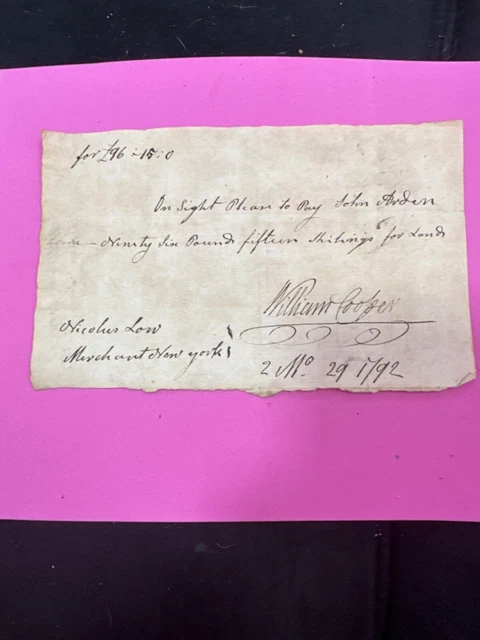 for £96 - 15 : 0
On Sight Please to Pay John Arden
Ninety Six Pounds fifteen Shilings for Lands
William Cooper
Nicolus Low
Merchant New york
2 Mo 29 1792